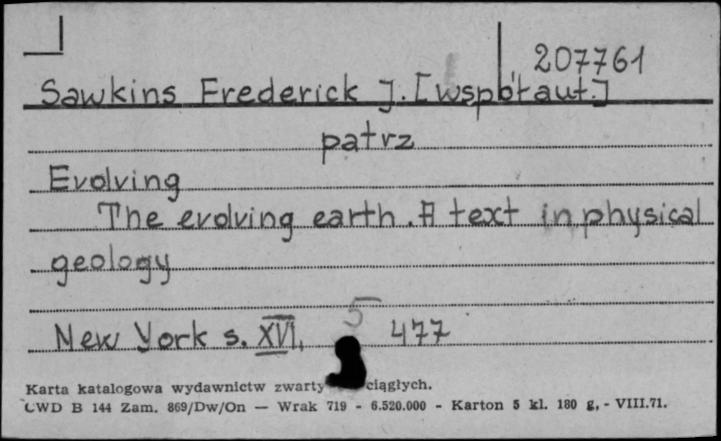 207761
Sawkins Frederick J. [współaut.]
patrz
Evolving
The evolving earth. A text in physical
geology
5
New York s. XVI, 477
Karta katalogowa wydawnictw zwarty ciągłych.
CWD B 144 Zam. 869/Dw/On — Wrak 719 - 6.520.000 - Karton 5 kl. 180 g, - VIII.71.